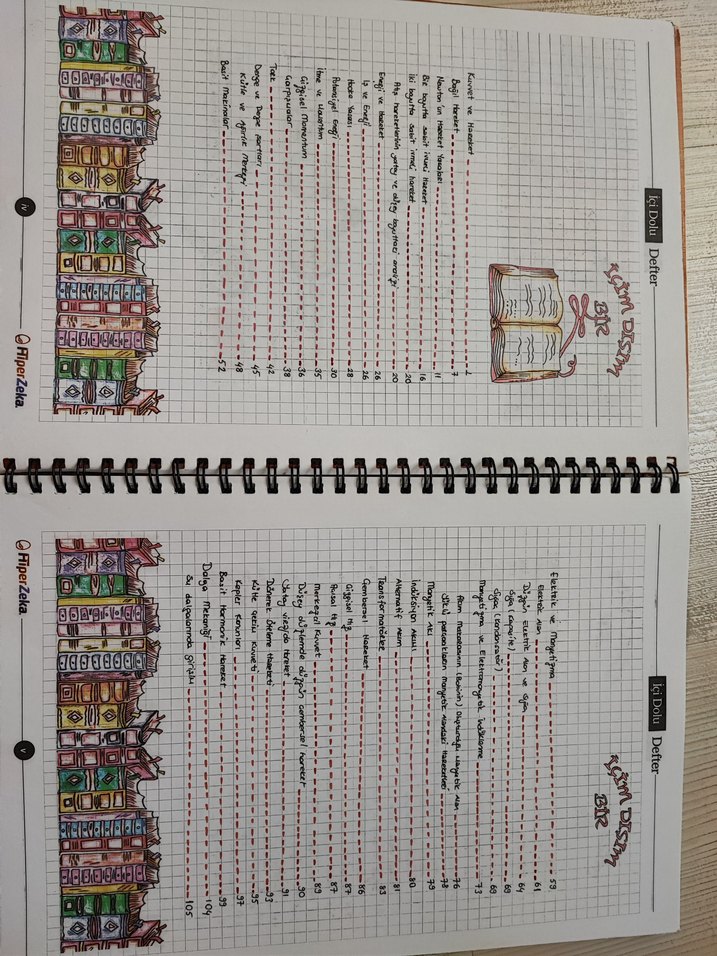 İçi Dolu Defter
İÇİM DIŞIM
BİR
Kuvvet ve Hareket 1
Bağıl Hareket 7
Newton'un Hareket Yasaları 11
Bir boyutta sabit ivmeli Hareket 16
İki boyutta sabit ivmeli hareket 20
Atış hareketlerinin yatay ve düşey boyuttaki analizi 20
Enerji ve Hareket 26
İş ve Enerji 26
Hooke Yasası 28
Potansiyel Enerji 30
İtme ve Momentum 35
Çizgisel Momentum 36
Çarpışmalar 38
Tork 42
Denge ve Denge Şartları 45
Kütle ve Ağırlık Merkezi 48
Basit Makinalar 52
iv
HiperZeka.
İçi Dolu Defter
İÇİM DIŞIM
BİR
Elektrik ve Manyetizma 59
Elektrik Alan 61
Düzgün Elektrik Alan ve Sığa 64
Sığa (kapasite) 69
Sığaç (kondansatör) 69
Manyetizma ve Elektromanyetik İndüklenme 73
Akım Makarasının (Bobinin) Oluşturduğu Manyetik Alan 76
Yüklü parçacıkların manyetik alandaki Hareketleri 78
Manyetik Akı 79
İndüksiyon Akımı 80
Alternatif Akım 81
Transformatörler 83
Çembersel Hareket 86
Çizgisel Hız 87
Açısal Hız 87
Merkezcil Kuvvet 89
Düşey düzlemde düzgün çembersel hareket 90
Yatay virajda Hareket 91
Dönerek Öteleme Hareketi 93
Kütle çekim Kuvveti 95
Kepler Kanunları 97
Basit Harmonik Hareket 99
Dalga Mekaniği 104
Su dalgalarında girişim 105
v
HiperZeka.